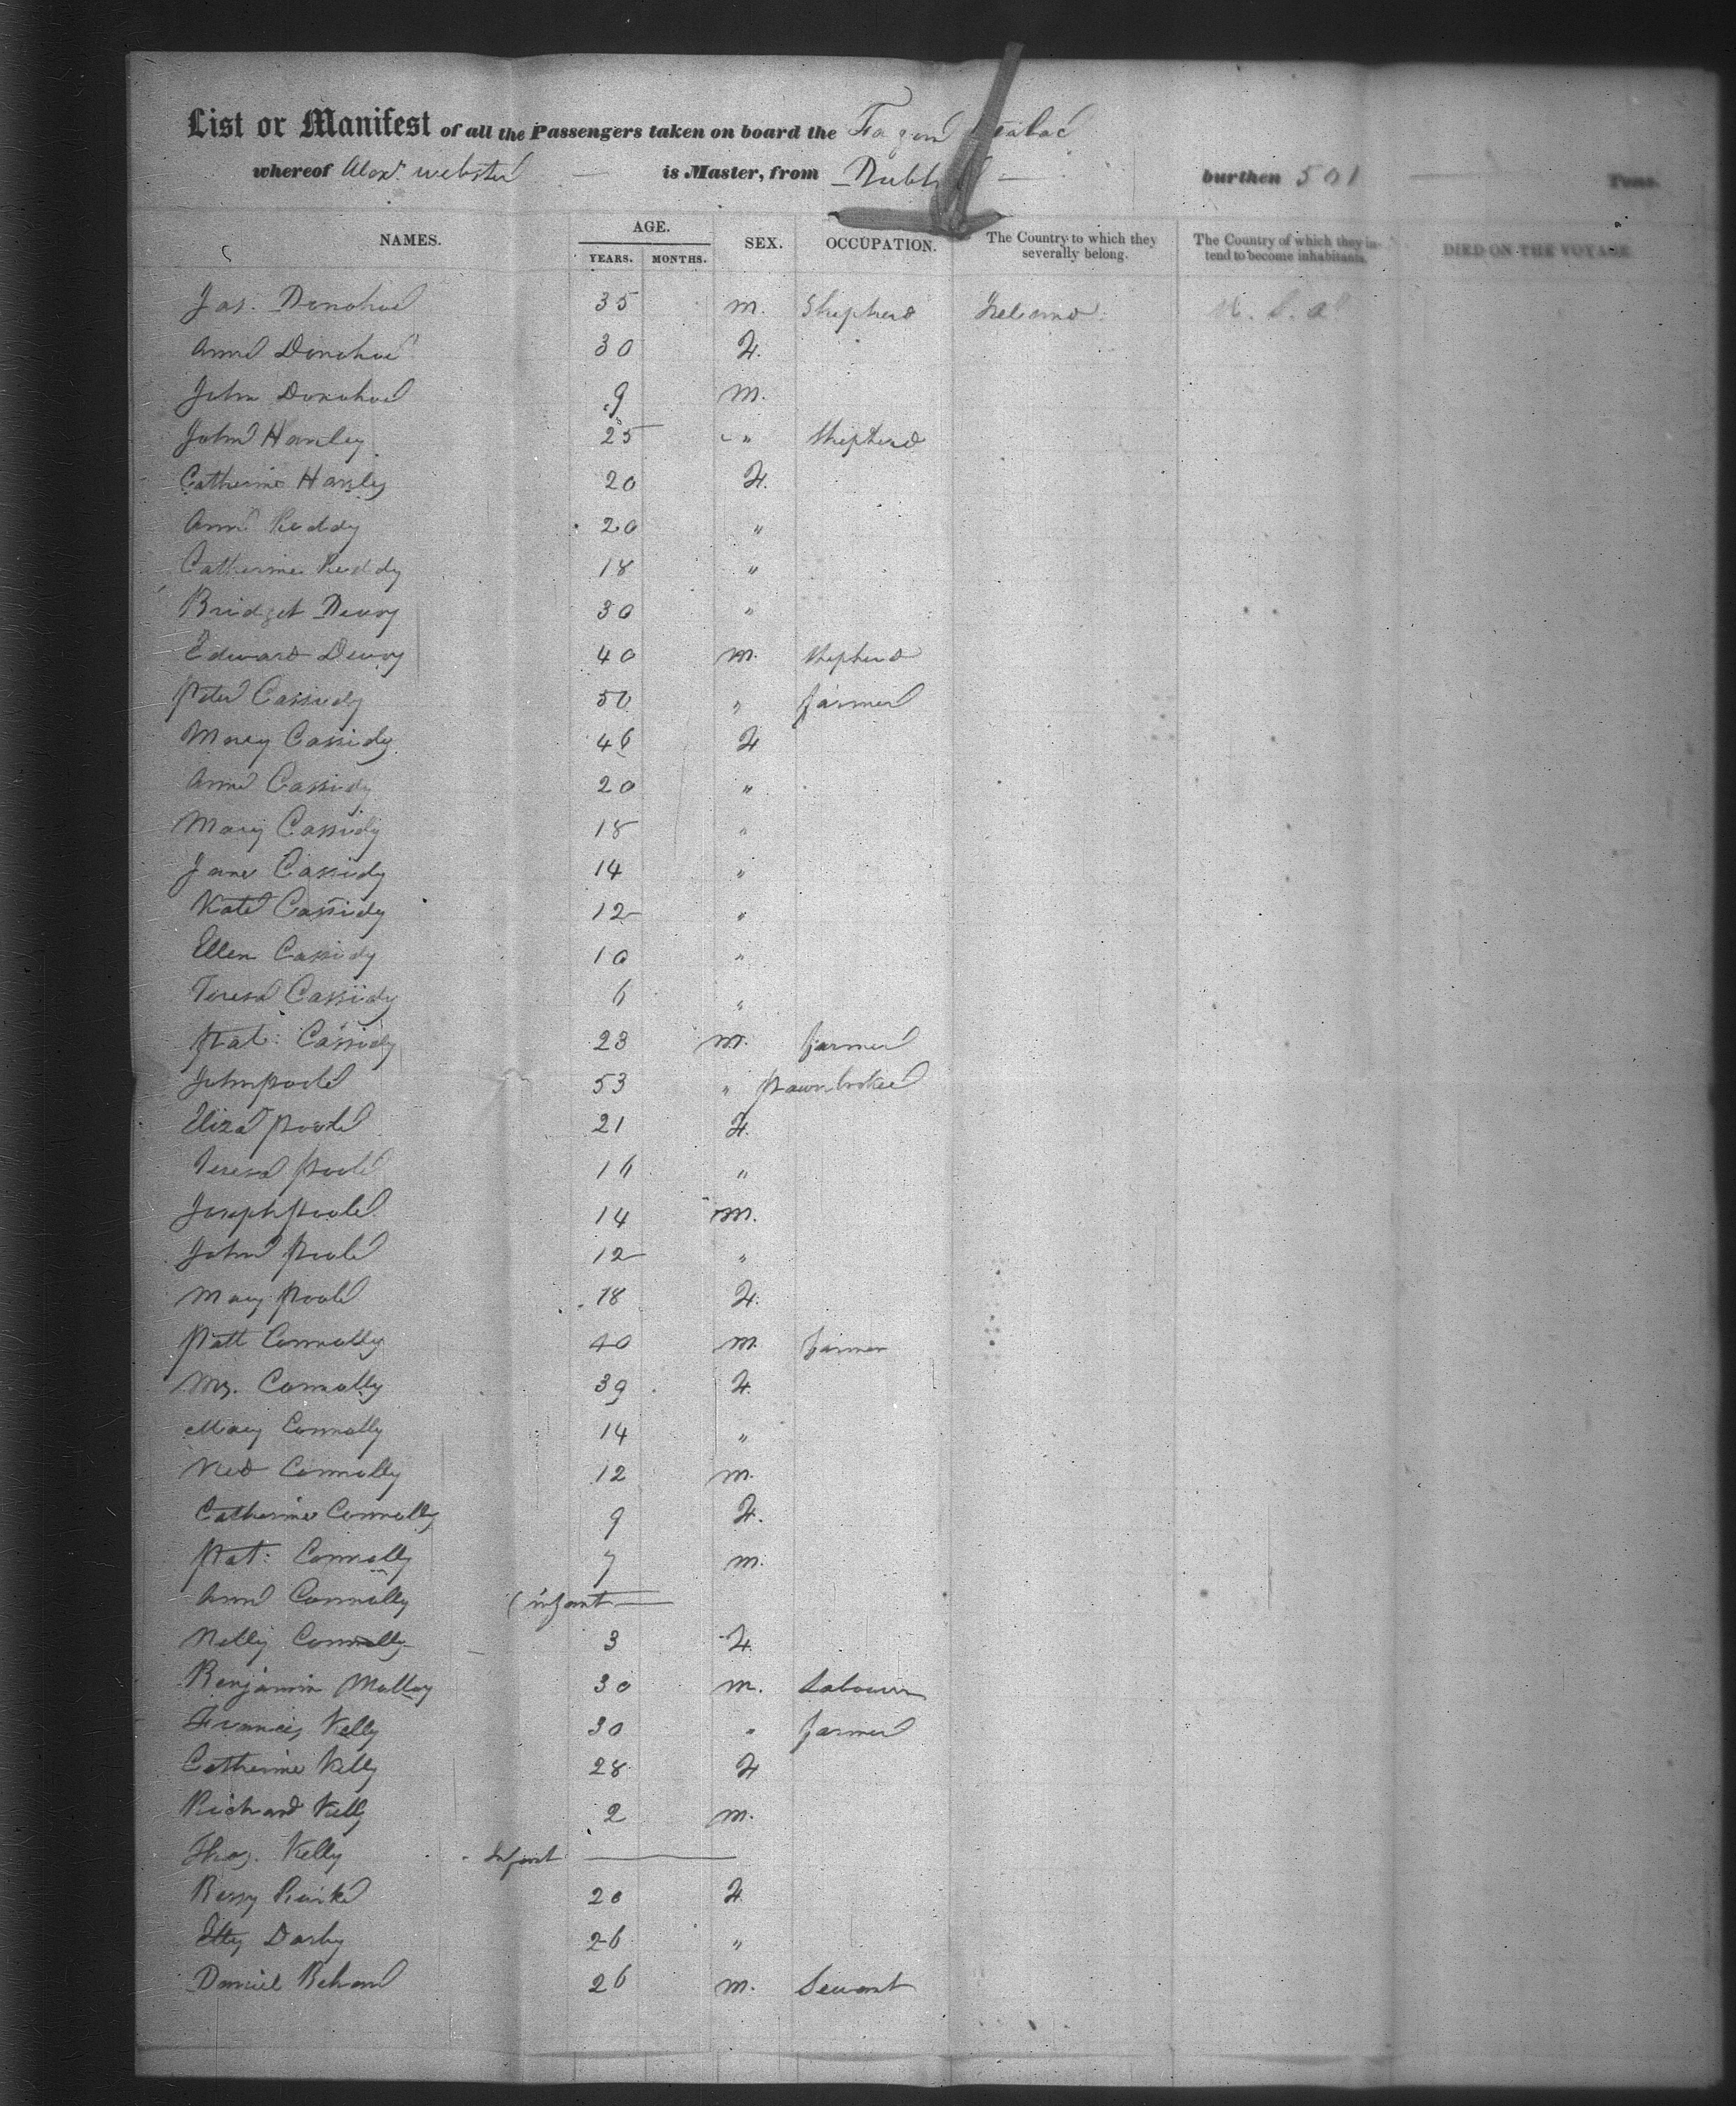 List or Manifest of all the Passengers taken on board the
whereof Alexr. Webster is Master, from burthen 501 Tons.
NAMES. AGE. YEARS. MONTHS. SEX. OCCUPATION. The Country to which they severally belong. The Country of which they intend to become inhabitants. DIED ON THE VOYAGE
Jas. Donohoe 35 M. Shepherd Ireland. U.S.A.
Anne Donohoe 30 F.
John Donohoe 9 M.
John Hanley 25 " Shepherd
Catherine Hanley 20 F.
Anne Reddy 20 "
Catherine Reddy 18 "
Bridget Devoy 30 "
Edward Devoy 40 M. Shepherd
Peter Cassidy 50 " farmer
Mary Cassidy 46 F
Anne Cassidy 20 "
Mary Cassidy 18 "
Jane Cassidy 14 "
Kate Cassidy 12 "
Ellen Cassidy 10 "
Teresa Cassidy 6 "
Pat: Cassidy 23 M. farmer
John Poole 53 " Pawnbroker
Eliza Poole 21 F.
Teresa Poole 16 "
Joseph Poole 14 M.
John Poole 12 "
Mary Poole 18 F.
Patt Connolly 40 M. farmer
Mrs. Connolly 39 F.
Mary Connolly 14 "
Ned Connolly 12 M.
Catherine Connolly 9 F.
Pat: Connolly 7 M.
Anne Connolly (infant
Nelly Connolly 3 F.
Benjamin Molloy 30 M. Labourer
Francis Kelly 30 " farmer
Catherine Kelly 28 F
Richard Kelly 2 M.
Thos. Kelly Infant
Bessy 20 F
Darby 26 "
Daniel Behan 26 M. Servant